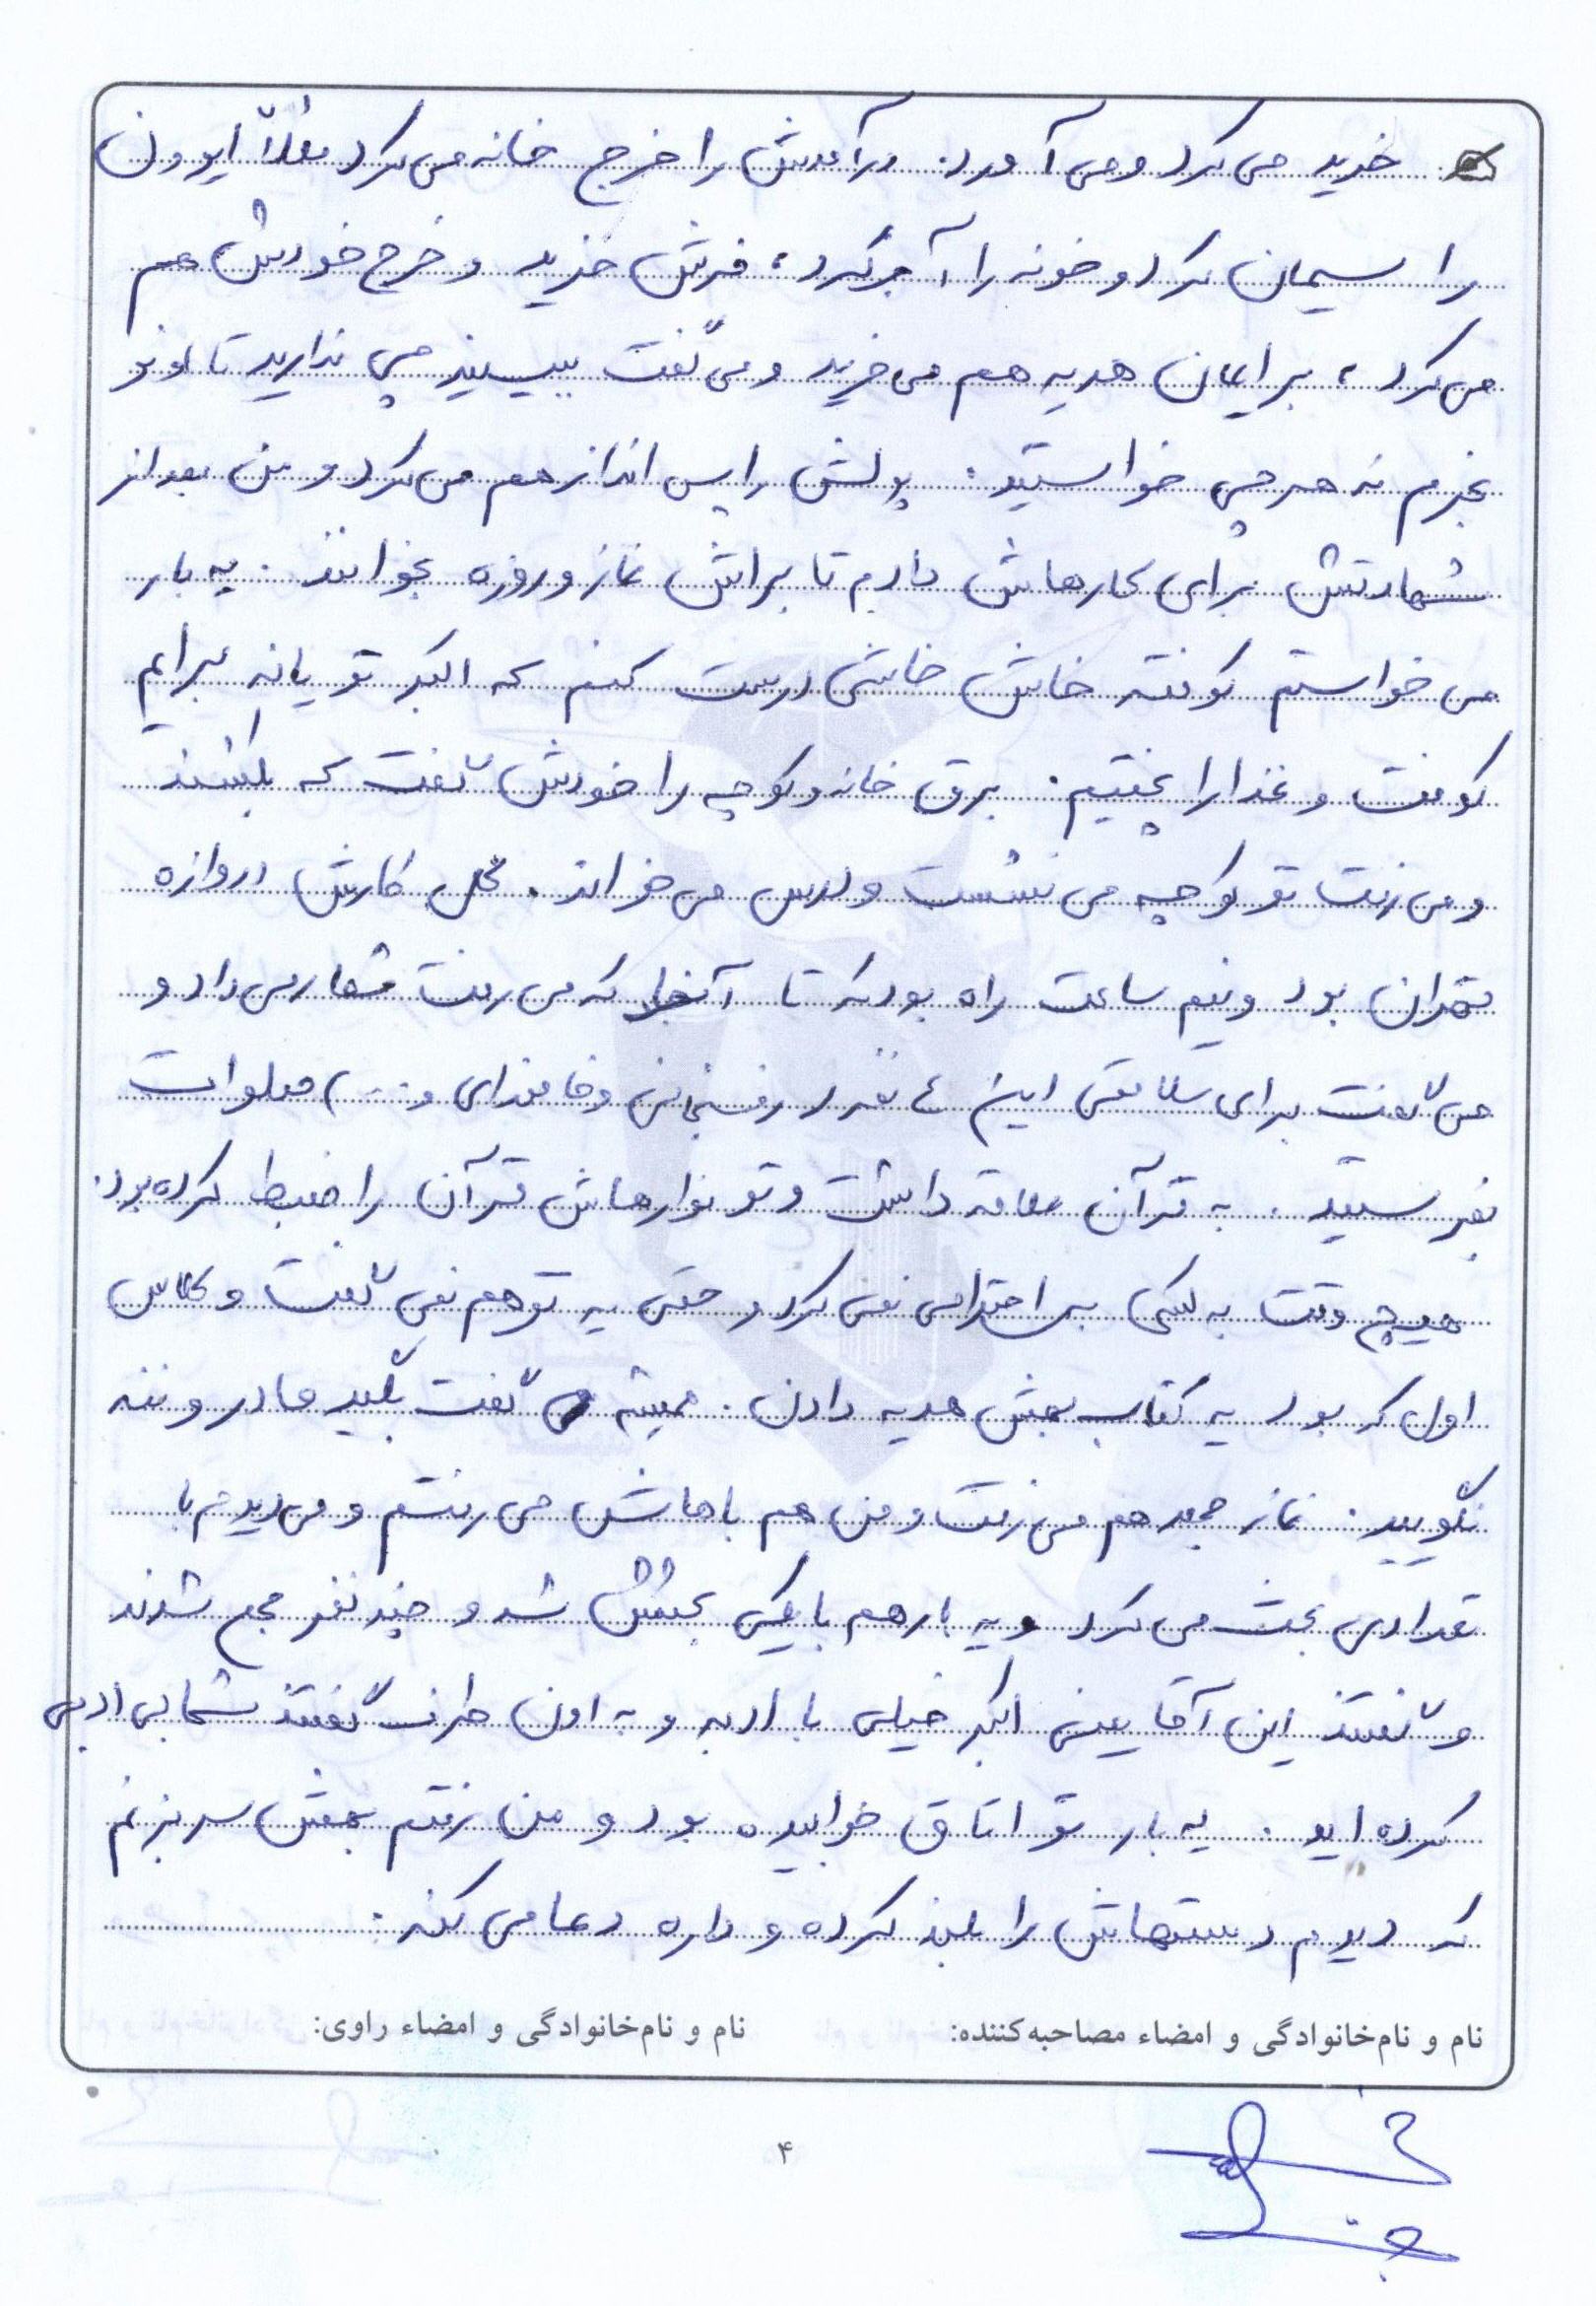 خرید می‌کرد و می آورد. درآمدش را خرج خانه می‌کرد مثلاً ایوون
را سیمان کرد و خونه را آجر کرد، فرش خرید و خرج خودش هم
می‌کرد، برایمان هدیه هم می‌خرید و می‌گفت ببینید چی ندارید تا اونو
بخرم نه هرچی خواستید. پولش را پس انداز هم می‌کرد و من بعد از
شهادتش برای کارهاش دادم تا براش نماز و روزه بخوانند. یه بار
می‌خواستم کوفته خاش خاشی درست کنم که اکبر تو یانه برایم
کوفت و غذا را پختیم. برق خانه و کوچه را خودش گفت که بکشند
و می‌رفت تو کوچه می‌نشست و درس می‌خواند. محل کارش دروازه
تهران بود و نیم ساعت راه بود که تا آنجا که می‌رفت شعار می‌داد و
می‌گفت برای سلامتی این ٤ نفر (رفسنجانی و خامنه‌ای و ...) صلوات
بفرستید. به قرآن علاقه داشت و تو نوارهاش قرآن را ضبط کرده بود.
هیچ وقت به کسی بی احترامی نمی‌کرد و حتی یه تو هم نمی گفت و کلاس
اول که بود یه کتاب بهش هدیه دادن. همیشه می گفت بگید مادر و ننه
نگویید. نماز جمعه هم می‌رفت و من هم باهاش می رفتم و می‌دیدم با
تعدادی بحث می‌کرد و یه بار هم با یکی بحثش شد و چند نفر جمع شدند
و گفتند این آقا یعنی اکبر خیلی با ادبه و به اون طرف گفتند شما بی ادبی
کرده اید. یه بار تو اتاق خوابیده بود و من رفتم بهش سر بزنم
که دیدم دستهاش را بلند کرده و داره دعا می کنه.
نام و نام‌خانوادگی و امضاء مصاحبه‌کننده: نام و نام‌خانوادگی و امضاء راوی:
۴